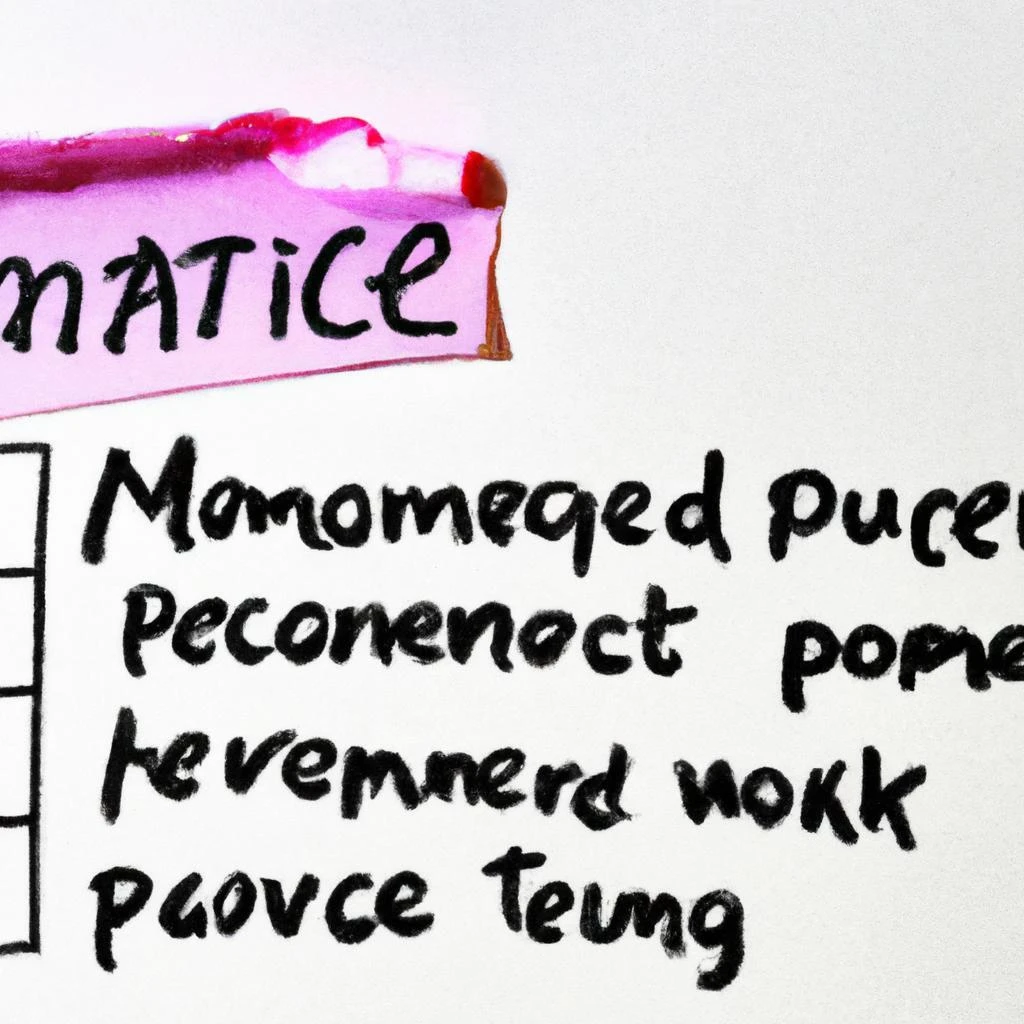 MATICe
Momomeqed pucer
peconenoct pome
tevemnerd nokk
paovce Teung